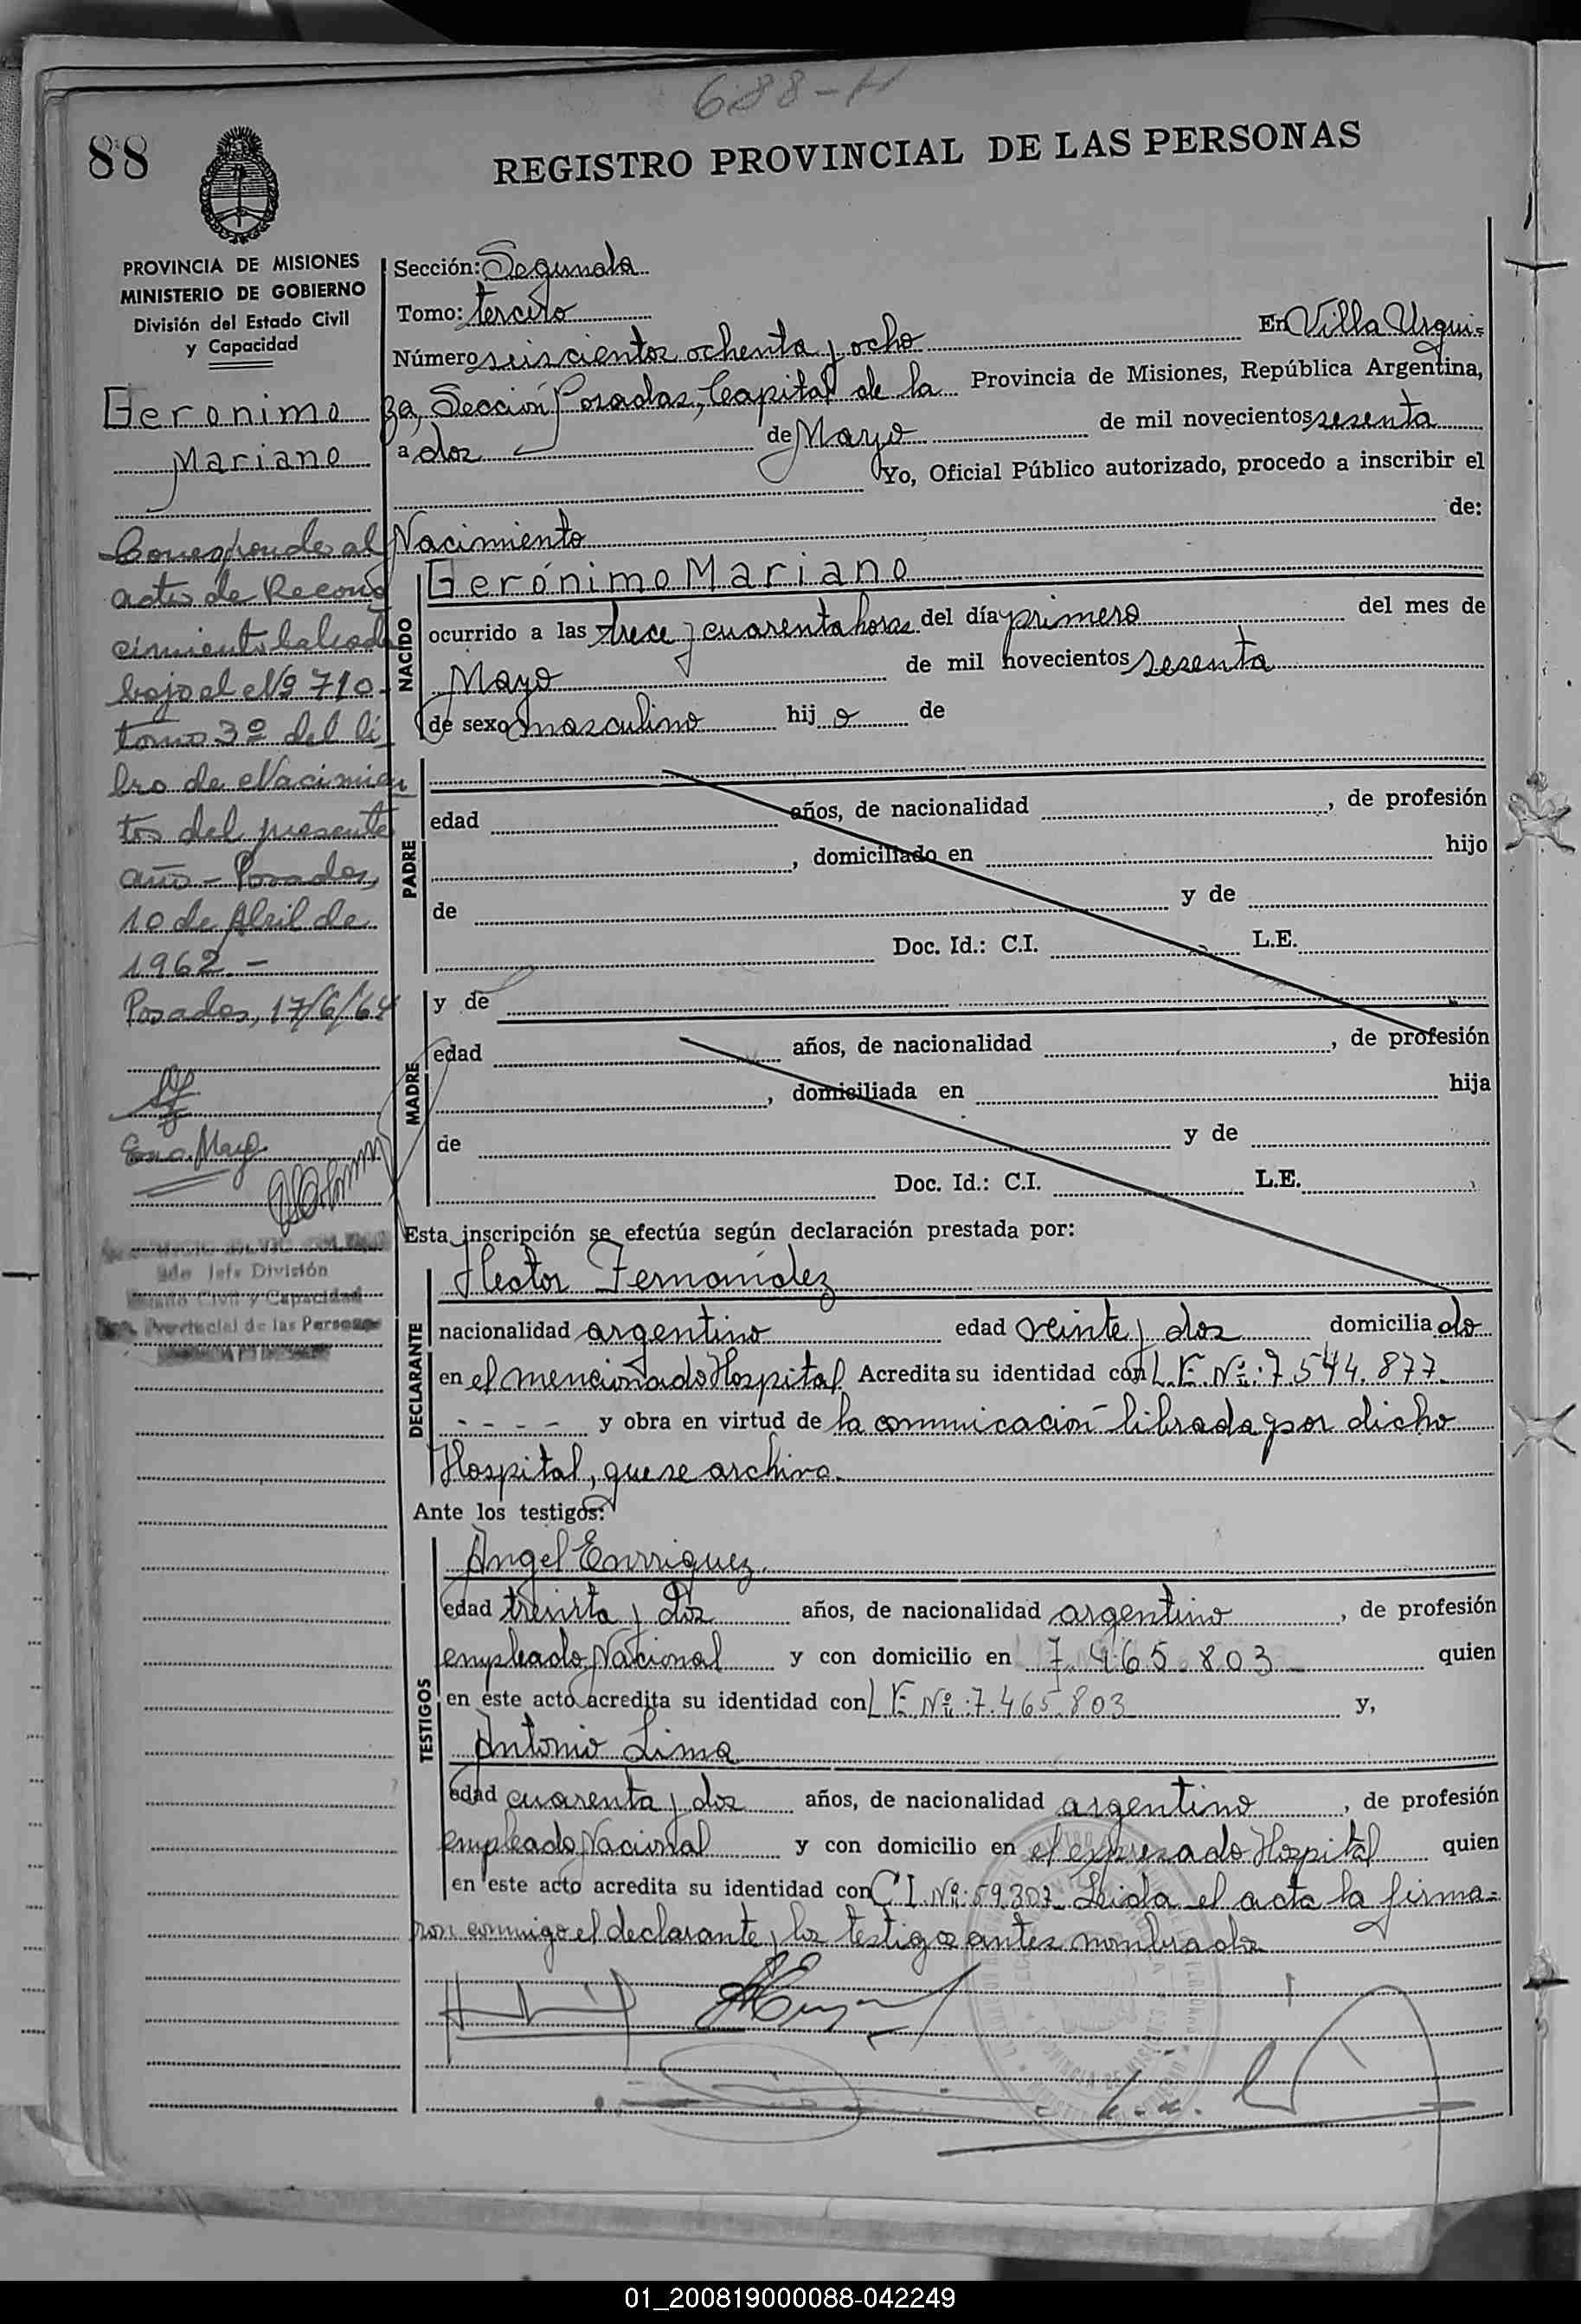 688-H
88
REGISTRO PROVINCIAL DE LAS PERSONAS
PROVINCIA DE MISIONES
MINISTERIO DE GOBIERNO
División del Estado Civil
y Capacidad
Geronimo
Mariano
Corresponde al
acta de Recono
cimiento labrada
bajo el Nº 710-
tomo 3º del li-
bro de Nacimien
tos del presente
año - Posadas,
10 de Abril de
1962.-
Posadas, 17/6/64
Jefe División
Estado Civil y Capacidad
Provincial de las Personas
Sección: Segunda
Tomo: tercero
Número seiscientos ochenta y ocho En Villa Urqui-
za, Sección Posadas, Capital de la Provincia de Misiones, República Argentina,
a dos de Mayo de mil novecientos sesenta
Yo, Oficial Público autorizado, procedo a inscribir el
Nacimiento de:
NACIDO
Gerónimo Mariano
ocurrido a las trece y cuarenta horas del día primero del mes de
Mayo de mil novecientos sesenta
de sexo masculino hijo de
PADRE
edad años, de nacionalidad , de profesión
, domiciliado en hijo
de y de
Doc. Id.: C.I. L.E.
MADRE
y de
edad años, de nacionalidad , de profesión
, domiciliada en hija
de y de
Doc. Id.: C.I. L.E.
Esta inscripción se efectúa según declaración prestada por:
DECLARANTE
Hector Fernández
nacionalidad argentino edad veinte y dos domiciliado
en el mencionado Hospital Acredita su identidad con L.E. Nº: 7.544.877
- - - - y obra en virtud de la comunicación librada por dicho
Hospital, que se archiva.
Ante los testigos:
TESTIGOS
Angel Enrriquez
edad treinta y dos años, de nacionalidad argentino, de profesión
empleado Nacional y con domicilio en 7.465.803 quien
en este acto acredita su identidad con L.E. Nº: 7.465.803 y,
Antonio Lima
edad cuarenta y dos años, de nacionalidad argentino, de profesión
empleado Nacional y con domicilio en el expresado Hospital quien
en este acto acredita su identidad con C.I. Nº: 59.307. Leida el acta la firma-
ron conmigo el declarante y los testigos antes nombrados
01_200819000088-042249